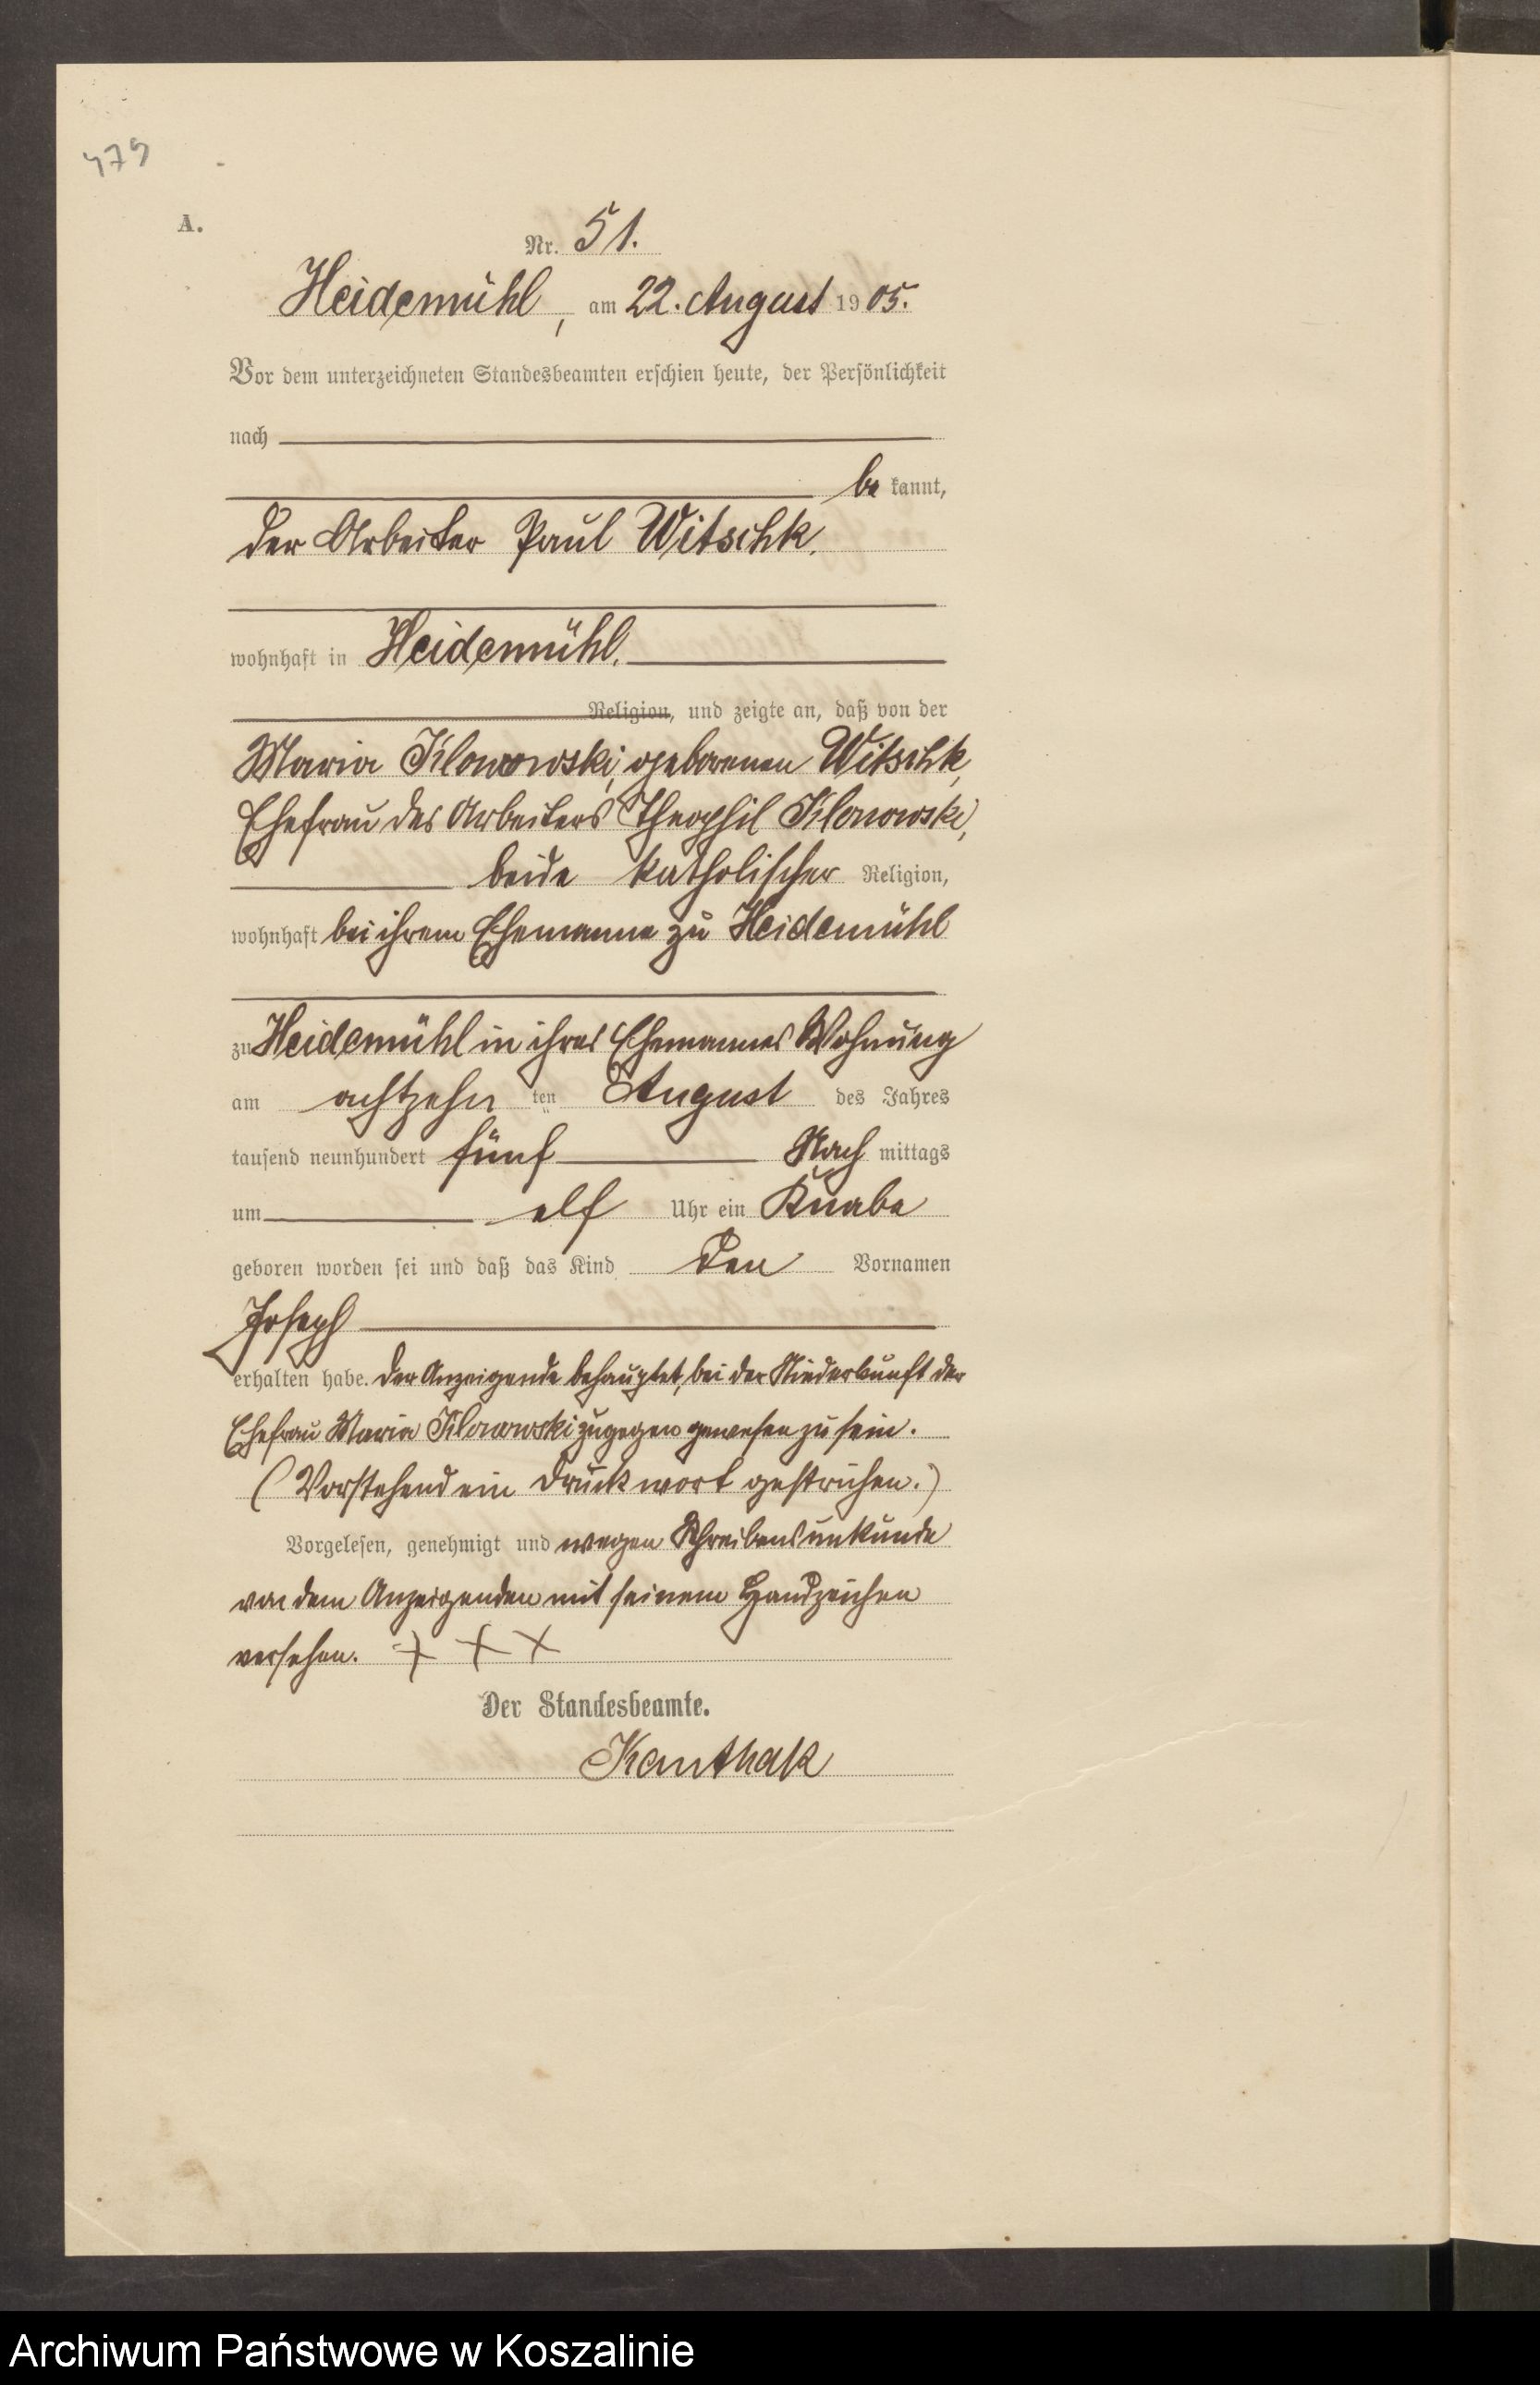 479
A.
Nr. 51.
Heidemühl, am 22. August 1905.
Vor dem unterzeichneten Standesbeamten erschien heute, der Persönlichkeit
nach
be kannt,
der Arbeiter Paul Witschk.
wohnhaft in Heidemühl.
Religion, und zeigte an, daß von der
Maria Klonowski, geborenen Witschk,
Ehefrau des Arbeiters Theophil Klonowski,
beide katholischer Religion,
wohnhaft bei ihrem Ehemanne zu Heidemühl
zu Heidemühl in ihres Ehemannes Wohnung
am achtzehn ten August des Jahres
tausend neunhundert fünf Nach mittags
um elf Uhr ein Knabe
geboren worden sei und daß das Kind den Vornamen
Joseph
erhalten habe. Der Anzeigende behauptet, bei der Niederkunft der
Ehefrau Maria Klonowski zugegen gewesen zu sein.
(Vorstehend ein Druckwort gestrichen.)
Vorgelesen, genehmigt und wegen Schreibensunkunde
von dem Anzeigenden mit seinem Handzeichen
versehen. + + +
Der Standesbeamte.
Kanthak
Archiwum Państwowe w Koszalinie